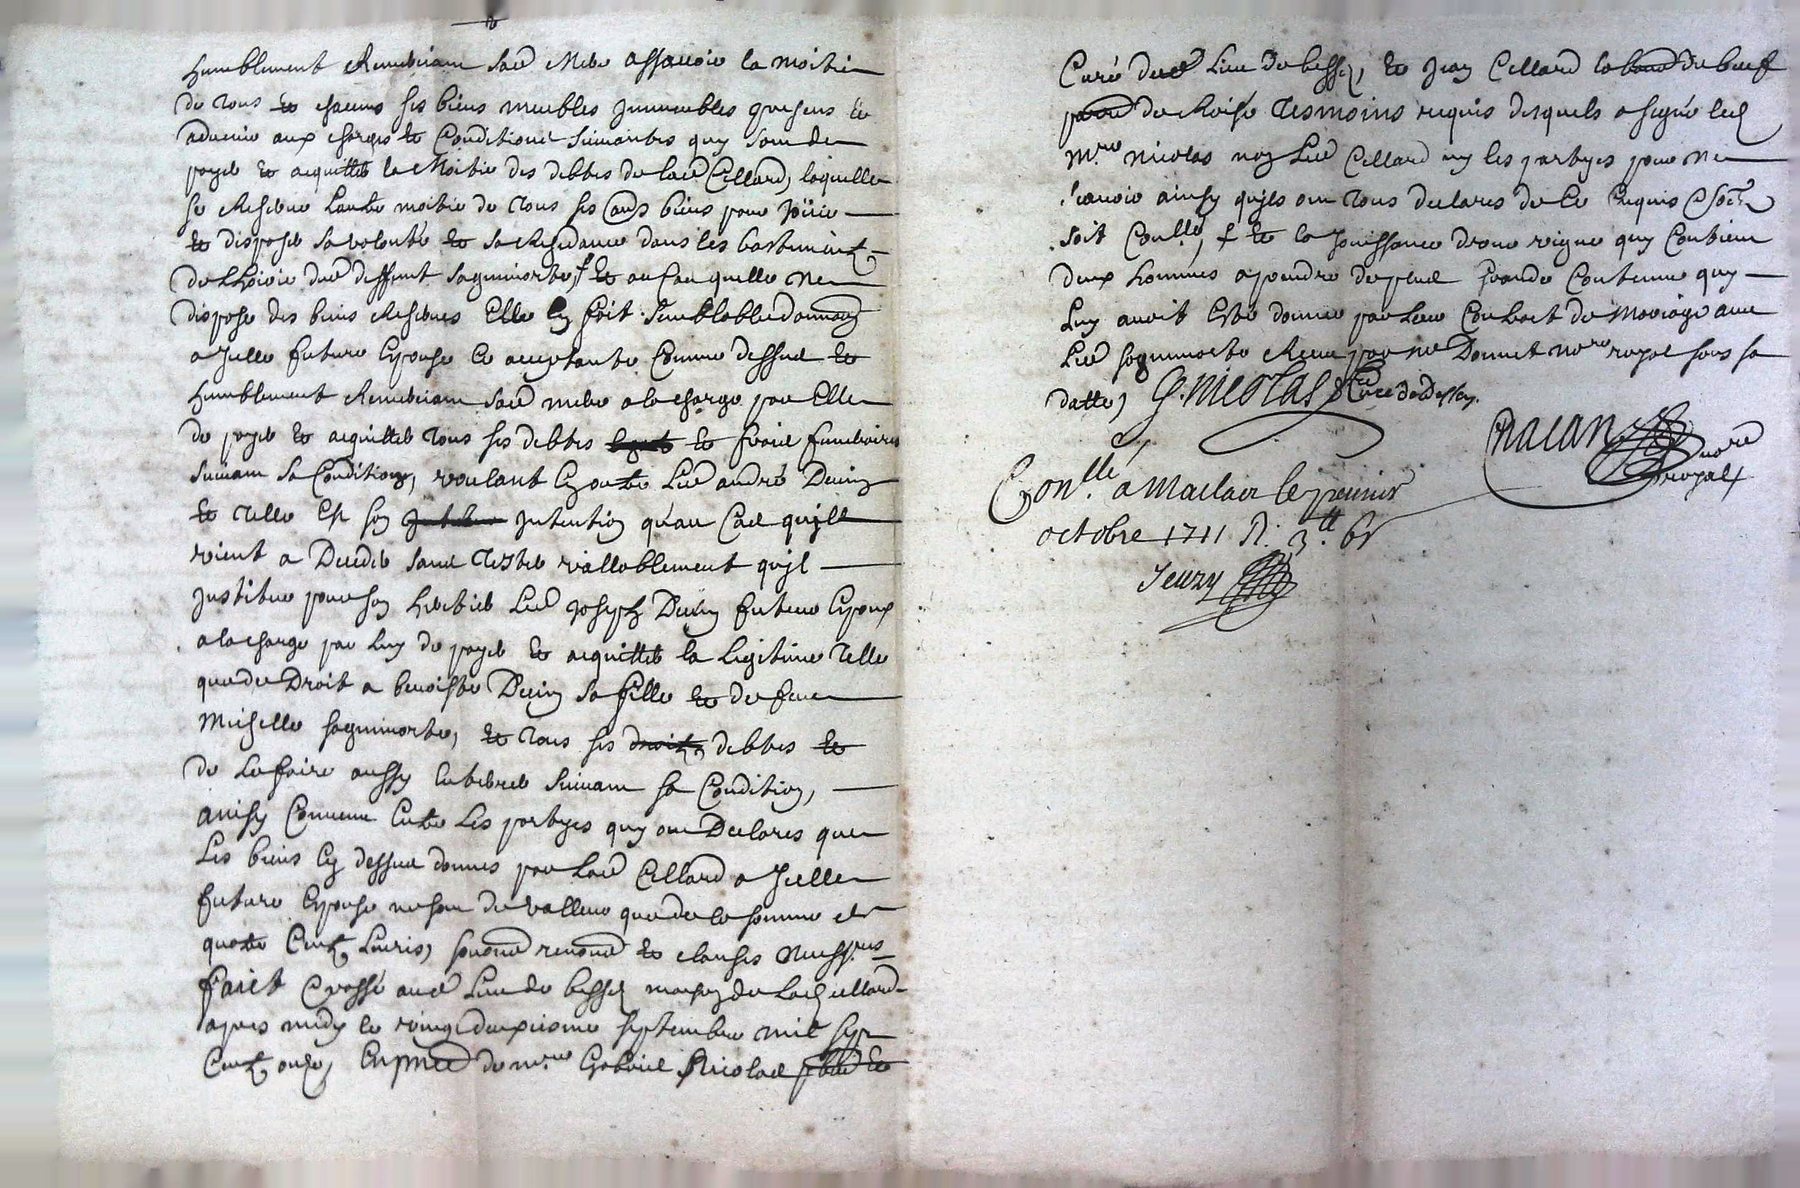 humblement Remerciant sad mere assavoir la moitié
de tous et chacuns ses biens meubles Immeubles presens et
advenir aux charges et Conditions suivantes quy sont de
payer et acquitter la Moitié des debtes de lad Cellard, laquelle
se Reserve lautre moitié de tous ses biens pour Joüir
et disposer sa volonté et sa Residance dans les bastiments
de lhoirie dud deffunt sagnimorte, f et au cas quelle ne
dispose des biens Reservés Elle en fait semblable donnaon
a Jcelle future Espouse ce acceptante Comme dessus et
humblement Remerciant sad mere a la charge par Elle
de payer et acquitter tous ses debtes et frais funeraires
suivant sa Condition, voulant En outre led andré Duin
et telle Est son Jntention qu'au Cas qu'jl
vient a Deceder sans tester vallablement qu'jl
Jnstitue pour son heritier led Joseph Duin futeur Espoux
a la charge par luy de payer et acquitter la legitime telle
que de Droit a benoiste Duin sa fille et de feue
Michelle sagnimorte, et tous ses debtes et
de le faire aussy enterrer suivant sa Condition,
ainsy Convenu Entre les partyes quy ont Declarés que
les biens Cy dessus donnés par lad Cellard a Jcelle
future Espouse ne sont de valleur que de la somme de
quatre Cents livres, et clauses
faict et passé aud lieu de besse, maison de lad Cellard
apres midy le vingt deuxiesme septembre mil sept
Cents onze, En pnce de mre Gabriel Nicolas
Curé dud lieu de besse, et Jean Cellard lab du bœuf
de Roisé tesmoins requis desquels a signé led
mre Nicolas non led Cellard ny les partyes pour ne
scavoir ainsy qu'jls ont tous declarés de ce Enquis &
soit Conllé, f et la Jouissance d'une vigne quy Contient
deux hommes a prendre de plus grande Contenue quy
luy avoit Esté donnée par leur Contract de Mariage avec
led sagnimorte Receu par me Donnet nore royal sous sa
datte, G. Nicolas Curé de Bessey.
Chacan nore
royal
Conllé a Maclaer le premier
octobre 1711 R. 3 ll 6s
Jeury